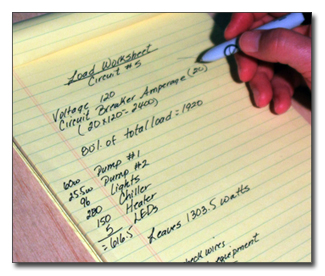 Load Worksheet
Circuit #5
Voltage 120
Circuit Breaker Amperage (20)
(20x120=2400)
80% of total load = 1920
60w Pump #1
25.5w Pump #2
96 Lights
280 Chiller
150 Heater
5 LEDs
=616.5 Leaves 1303.5 watts
wires